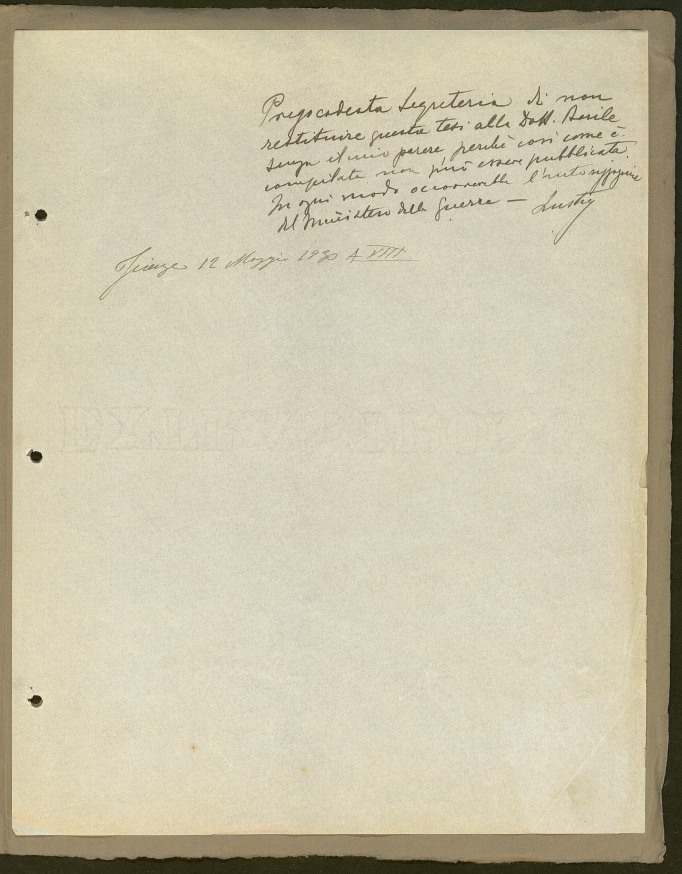 Prego codesta Segreteria di non
restituire questa tesi alla Dott.
senza il mio parere perchè così come è
compilata non può essere pubblicata.
In ogni modo occorrerebbe l'autorizzazione
del Ministero della Guerra —
Firenze 12 Maggio 1930 A VIII